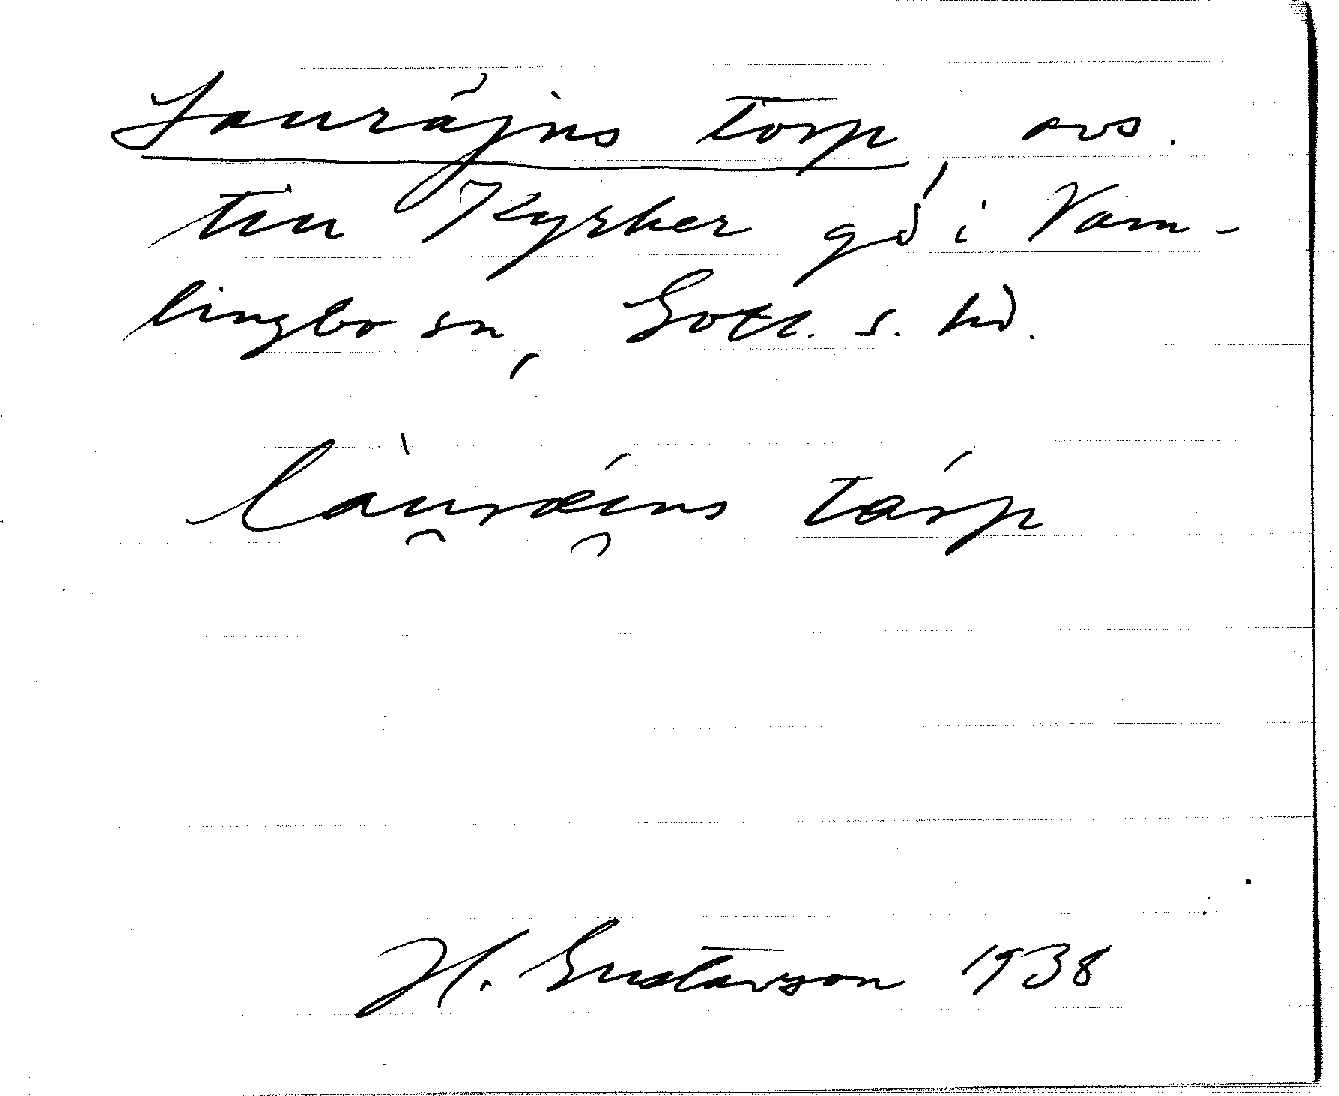 Lauräjns torp, avs.
tin Kyrker gd i Vam-
lingbo sn, Gotl. s. hd.
làu̯ræi̯ns tårp
H. Gustavson 1938